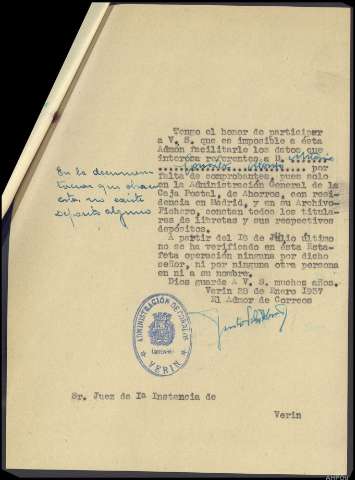 Tengo el honor de participar
a V. S. que es imposible a ésta
Admón facilitarle los datos que
interesa referentes a D.
por
falta de comprobantes, pues solo
en la Administración General de la
Caja Postal, de Ahorros, con resi
dencia en Madrid, y en su Archivo-
Fichero, constan todos los titula-
res de libretas y sus respectivos
depósitos.
A partir del 18 de Julio último
no se ha verificado en ésta Es-
tafeta operación ninguna por dicho
señor, ni por ninguna otra persona
en ni a su nombre.
Dios guarde a V. S. muchos años.
Verin 28 de Enero 1937
El Admor de Correos
En la documen
que obra
no existe
depósito alguno
ADMINISTRACIÓN DE CORREOS
VERIN
Sr. Juez de Iª Instancia de
Verin